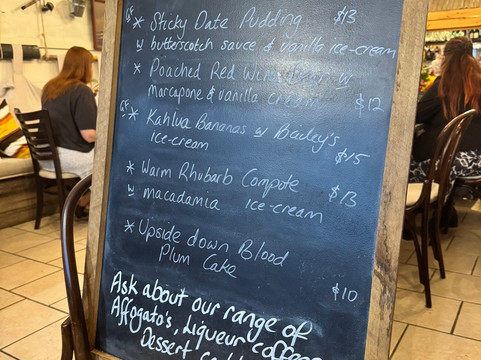 GF * Sticky Date Pudding $13
w butterscotch sauce & vanilla ice-cream
* Poached Red Wine Pear w
marcapone & vanilla cream $12
GF * Kahlua Bananas w Bailey's
ice-cream $15
* Warm Rhubarb Compote
w macadamia ice-cream $13
* Upside down Blood
Plum Cake $10
Ask about our range of
Affogato's, Liqueur coffees
Dessert